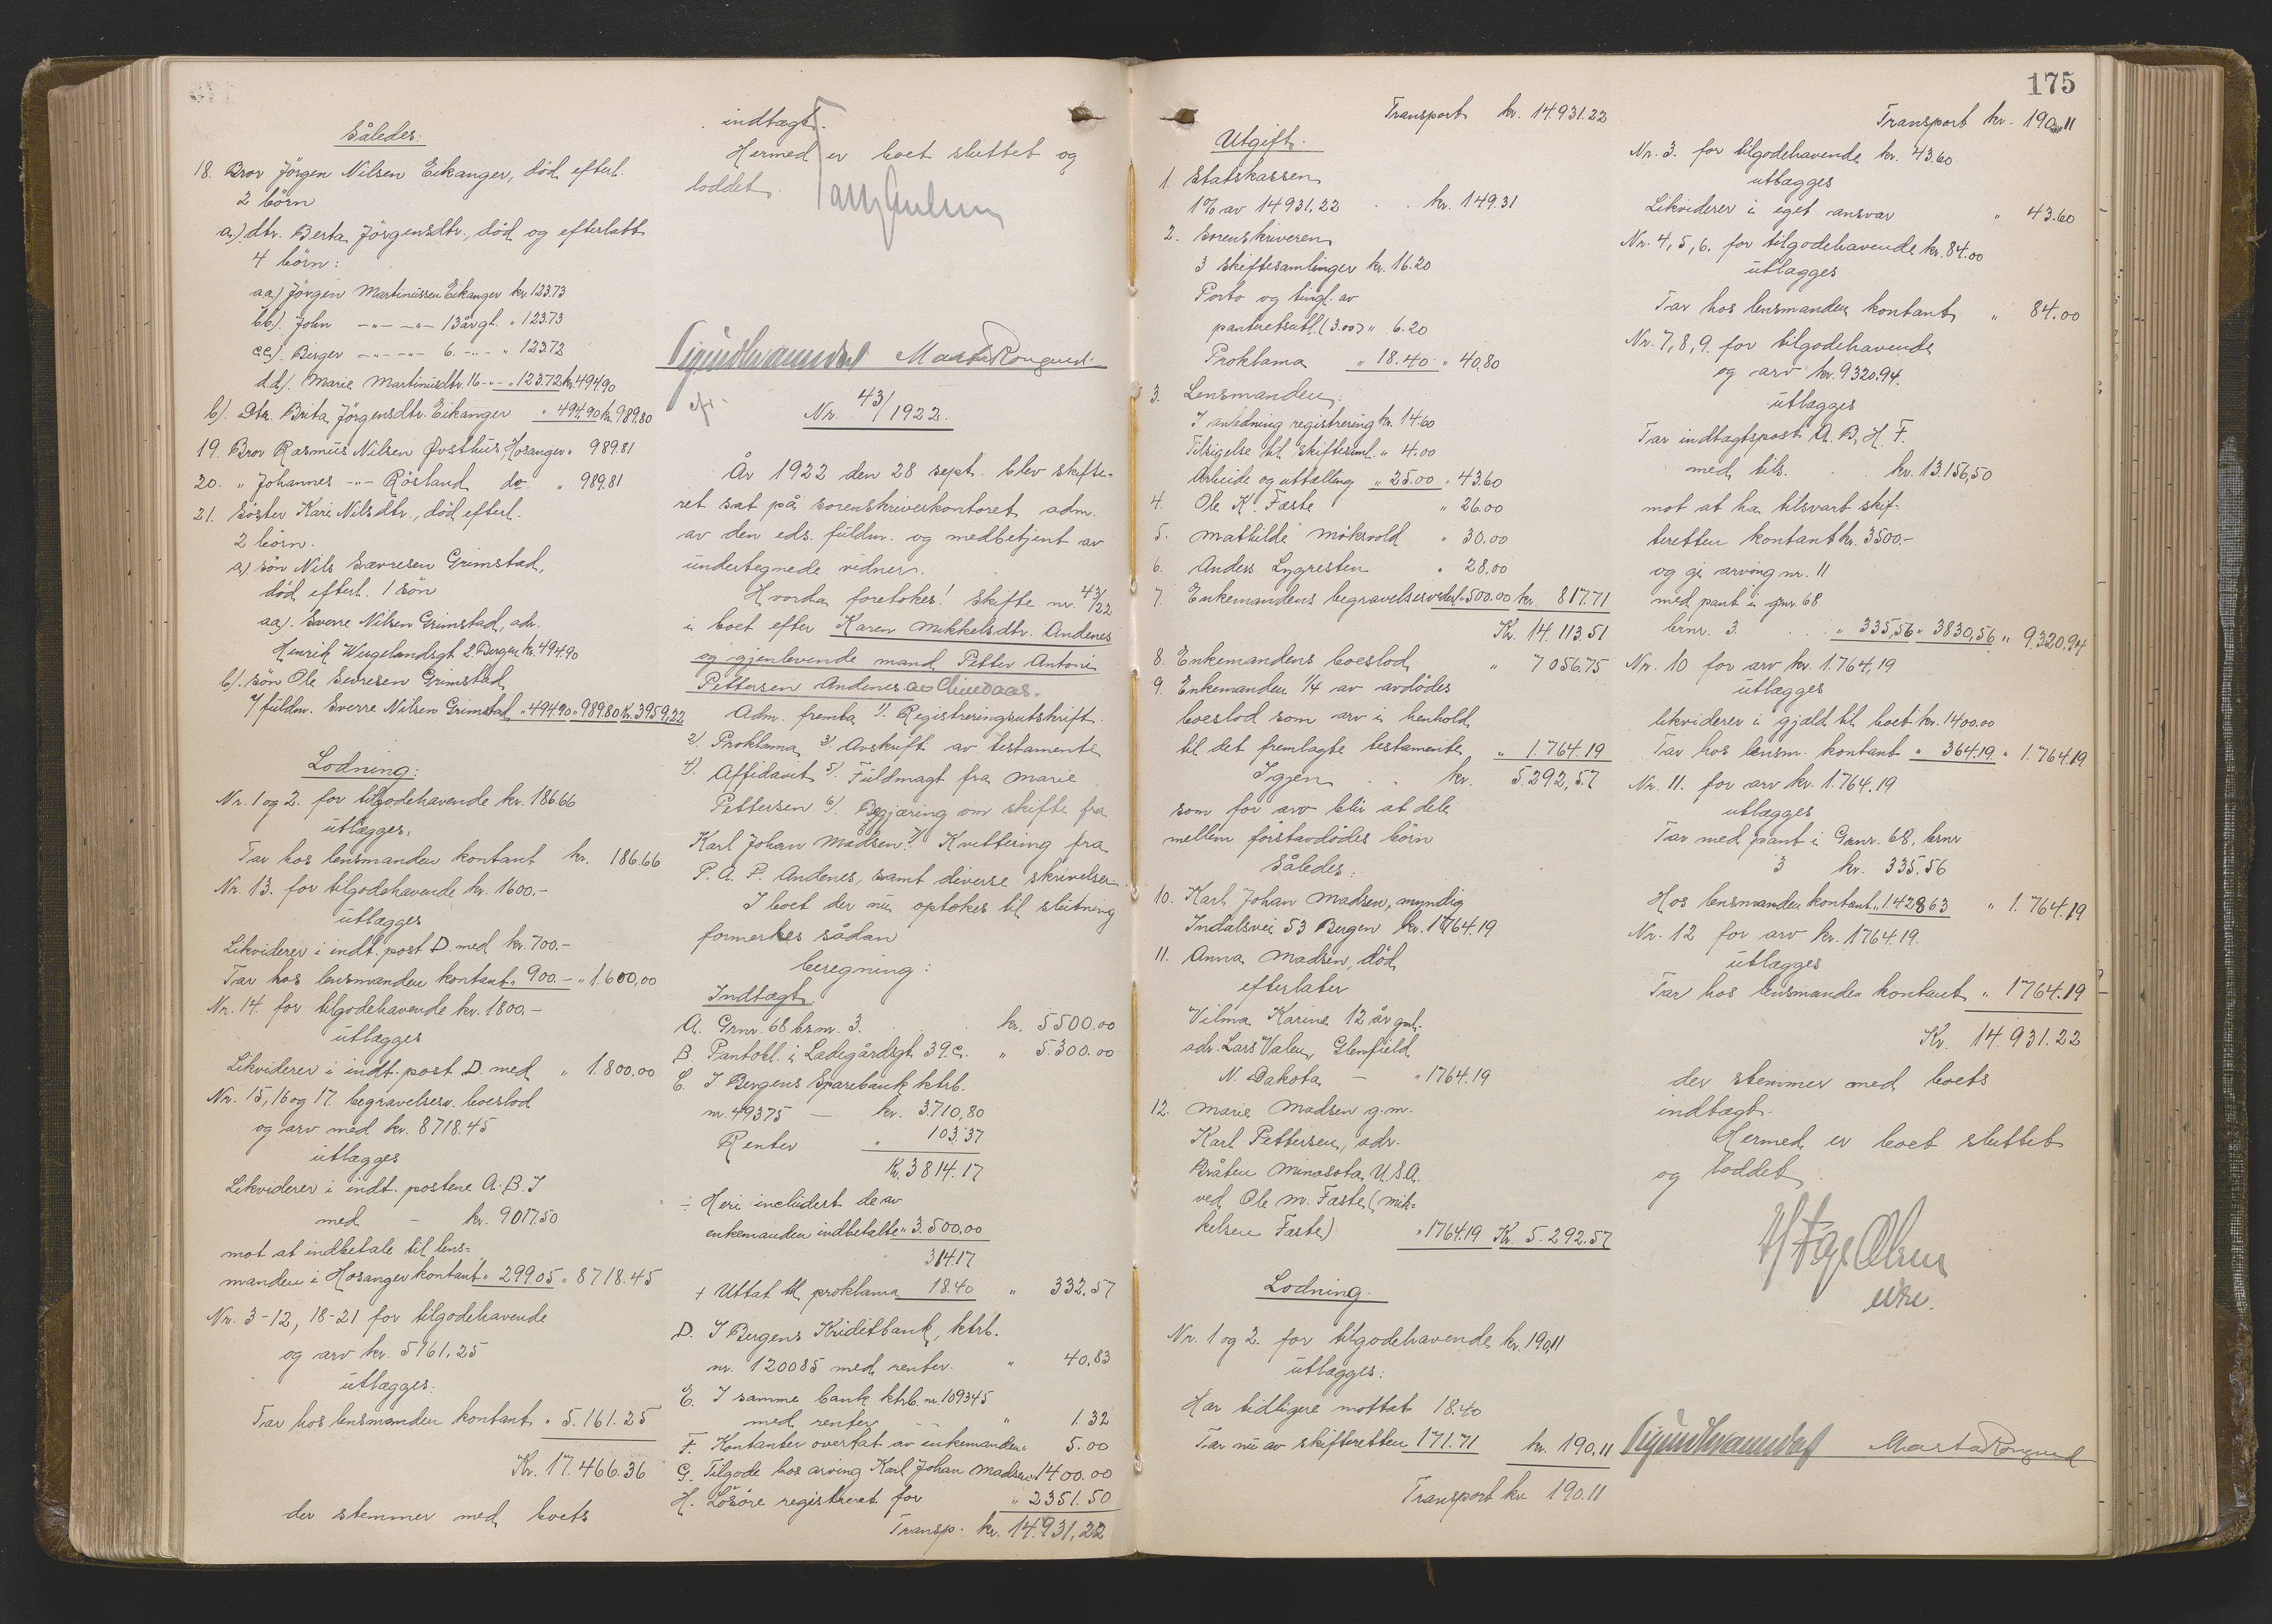 Således:
18. Bror Jörgen Nilsen Eikanger, död, efterl.
2 börn
a) dtr. Berta Jörgensdtr., död og efterlatt
4 börn:
aa) Jörgen Martinussen Eikanger kr. 123.73
bb). John -"- -"- 13 år gl. " 123.73
cc). Birger -"- -"- 6. -"- " 123.72
dd). Marie Martinusdtr. 16 -"- " 123.72 kr. 494.90
b). Dtr. Brita Jörgensdtr. Eikanger " 494.90 kr. 989.80
19. Bror Rasmus Nilsen Øvsthus, Hosanger " 989.81
20. " Johannes -"- Röstand do. " 989.81
21. Söster Kari Nilsdtr., död, efterl.
2 börn.
a) sön Nils Sævresen Grimstad,
död, efterl. 1 sön
aa). Sverre Nilsen Grimstad, adr.
Henrik Wergelandsgt. 2. Bergen kr. 494.90
b). sön Ole Sevresen Grimstad
v/ fuldm. Sverre Nilsen Grimstad " 494.90 " 989.80 kr. 3959,22
Lodning:
Nr. 1 og 2. for tilgodehavende kr. 186.66
utlægges.
Tar hos lensmanden kontant kr. 186.66
Nr. 13. for tilgodehavende kr. 1600.-
utlægges
Likviderer i indt. post D. med kr. 700.-
Tar hos lensmanden kontant " 900.- " 1.600,00
Nr. 14. for tilgodehavende kr. 1800.-
utlægges
Likviderer i indt. post D. med " 1.800.00
Nr. 15, 16 og 17. begravelsesv. boeslod
og arv med kr. 8718.45
utlægges
Likviderer i indt. postene A. B. I
med - kr. 9017.50
mot at indbetale til lens-
manden i Hosanger kontant " 299.05 " 8718.45
Nr. 3-12, 18-21 for tilgodehavende
og arv kr. 5161.25
utlægges:
Tar hos lensmanden kontant " 5.161.25
Kr. 17.466.36
der stemmer med boets
indtægt.
Hermed er boet sluttet og
loddet.
Marta
Nr. 43/1922.
År 1922 den 28 sept. blev skifte-
ret sat på sorenskriverkontoret adm.
av den eds. fuldm. og medbetjent av
undertegnede vidner.
Hvorda foretokes! Skifte nr. 43/22
i boet efter Karen Mikkelsdtr. Andenes
og gjenlevende mand Petter Antoni
Pettersen Andenes av
Adm. fremla 1). Registreringsutskrift.
2). Proklama 3). Avskrift av testamente
4). Affidavit 5). Fuldmagt fra Marie
Pettersen 6). Begjæring om skifte fra
Karl Johan Madsen. 7). Kvittering fra
P. A. P. Andenes, samt diverse skrivelser.
I boet der nu optokes til slutning
formerkes sådan
beregning:
Indtægt.
A. Grnr. 68 brnr. 3. kr. 5500.00
B. Pantobl. i Ladegårdsgt. 39.c. " 5.300.00
C. I Bergens Sparebank ktrb.
nr. 49375 — kr. 3.710,80
Renter " 103.37
Kr. 3814.17
÷ Heri includert de av
enkemanden indbetalte " 3.500,00
314.17
+ Uttat til proklama 18.40 " 332,57
D. I Bergens Kreditbank, ktrb.
nr. 120085 med renter. " 40,83
E. I samme bank ktrb. nr. 109345
med renter " 1.32
F. Kontanter overtat av enkemanden " 5.00
G. Tilgode hos arving Karl Johan Madsen " 1400.00
H. Lösöre registreret for " 2351.50
Transp. kr. 14.931,22
175
Transport kr. 14.931.22
Utgift.
1. Statskassen
1% av 14931,22 . . kr. 149.31
2. Sorenskriveren
3 skiftesamlinger kr. 16.20
Porto og tingl. av
panteretsutl. (3.00) " 6.20
Proklama " 18.40 " 40.80
3. Lensmanden:
I anledning registrering kr. 14.60
Tilsigelse til skiftesaml. " 4.00
Arbeide og uttælling " 25.00 " 43.60
4. Ole K. Fæste " 26.00
5. Mathilde Möksvold " 30.00
6. Anders Lygresten " 28.00
7. Enkemandens begravelsesvederl. " 500.00 kr. 817.71
Kr. 14.113.51
8. Enkemandens boeslod " 7056.75
9. Enkemanden 1/4 av avdødes
boeslod som arv i henhold
til det fremlagte testamente " 1.764.19
Igjen . . kr. 5.292,57
som for arv blir at dele
mellem förstavdödes börn
således:
10. Karl Johan Madsen, myndig
Indalsvei 53 Bergen kr. 1764.19
11. Anna Madsen, död,
efterlater
Vilma Karine 12 år gml.
adr. Lars Valen, Glenfield,
N. Dakota — " 1764.19
12. Marie Madsen g. m.
Karl Pettersen, adr.
Bråten Minosota, U.S.A.
ved Ole M. Fæste (Mik-
kelsen Fæste) " 1764.19 Kr. 5.292.57
Lodning.
Nr. 1 og 2. for tilgodehavende kr. 190.11
utlægges:
Har tidligere mottat 18.40
Tar nu av skifteretten 171.71 kr. 190.11
Transport kr. 190.11
Transport kr. 190.11
Nr. 3. for tilgodehavende kr. 43.60
utlægges
Likviderer i eget ansvar " 43.60
Nr. 4, 5, 6. for tilgodehavende kr. 84.00
utlægges
Tar hos lensmanden kontant " 84.00
Nr. 7, 8, 9. for tilgodehavende
og arv kr. 9320.94.
utlægges
Tar indtægtspost A. B, H. F.
med tils. . kr. 13.156,50
mot at ha tilsvart skif-
teretten kontant kr. 3500.-
og gi arving nr. 11
med pant i gnr. 68
brnr. 3. . . " 335,56 " 3830,56 " 9.320.94
Nr. 10 for arv kr. 1.764,19
utlægges
likviderer i gjæld til boet kr. 1400.00
Tar hos lensm. kontant " 364.19 " 1.764.19
Nr. 11. for arv kr. 1.764.19
utlægges
Tar med pant i Grnr. 68, brnr
3 kr. 335.56
Hos lensmanden kontant " 1.428 63 " 1.764.19
Nr. 12 for arv kr. 1764.19.
utlægges
Tar hos lensmanden kontant " 1764.19
Kr. 14.931.22
der stemmer med boets
indtægt.
Hermed er boet sluttet
og loddet.
Marta